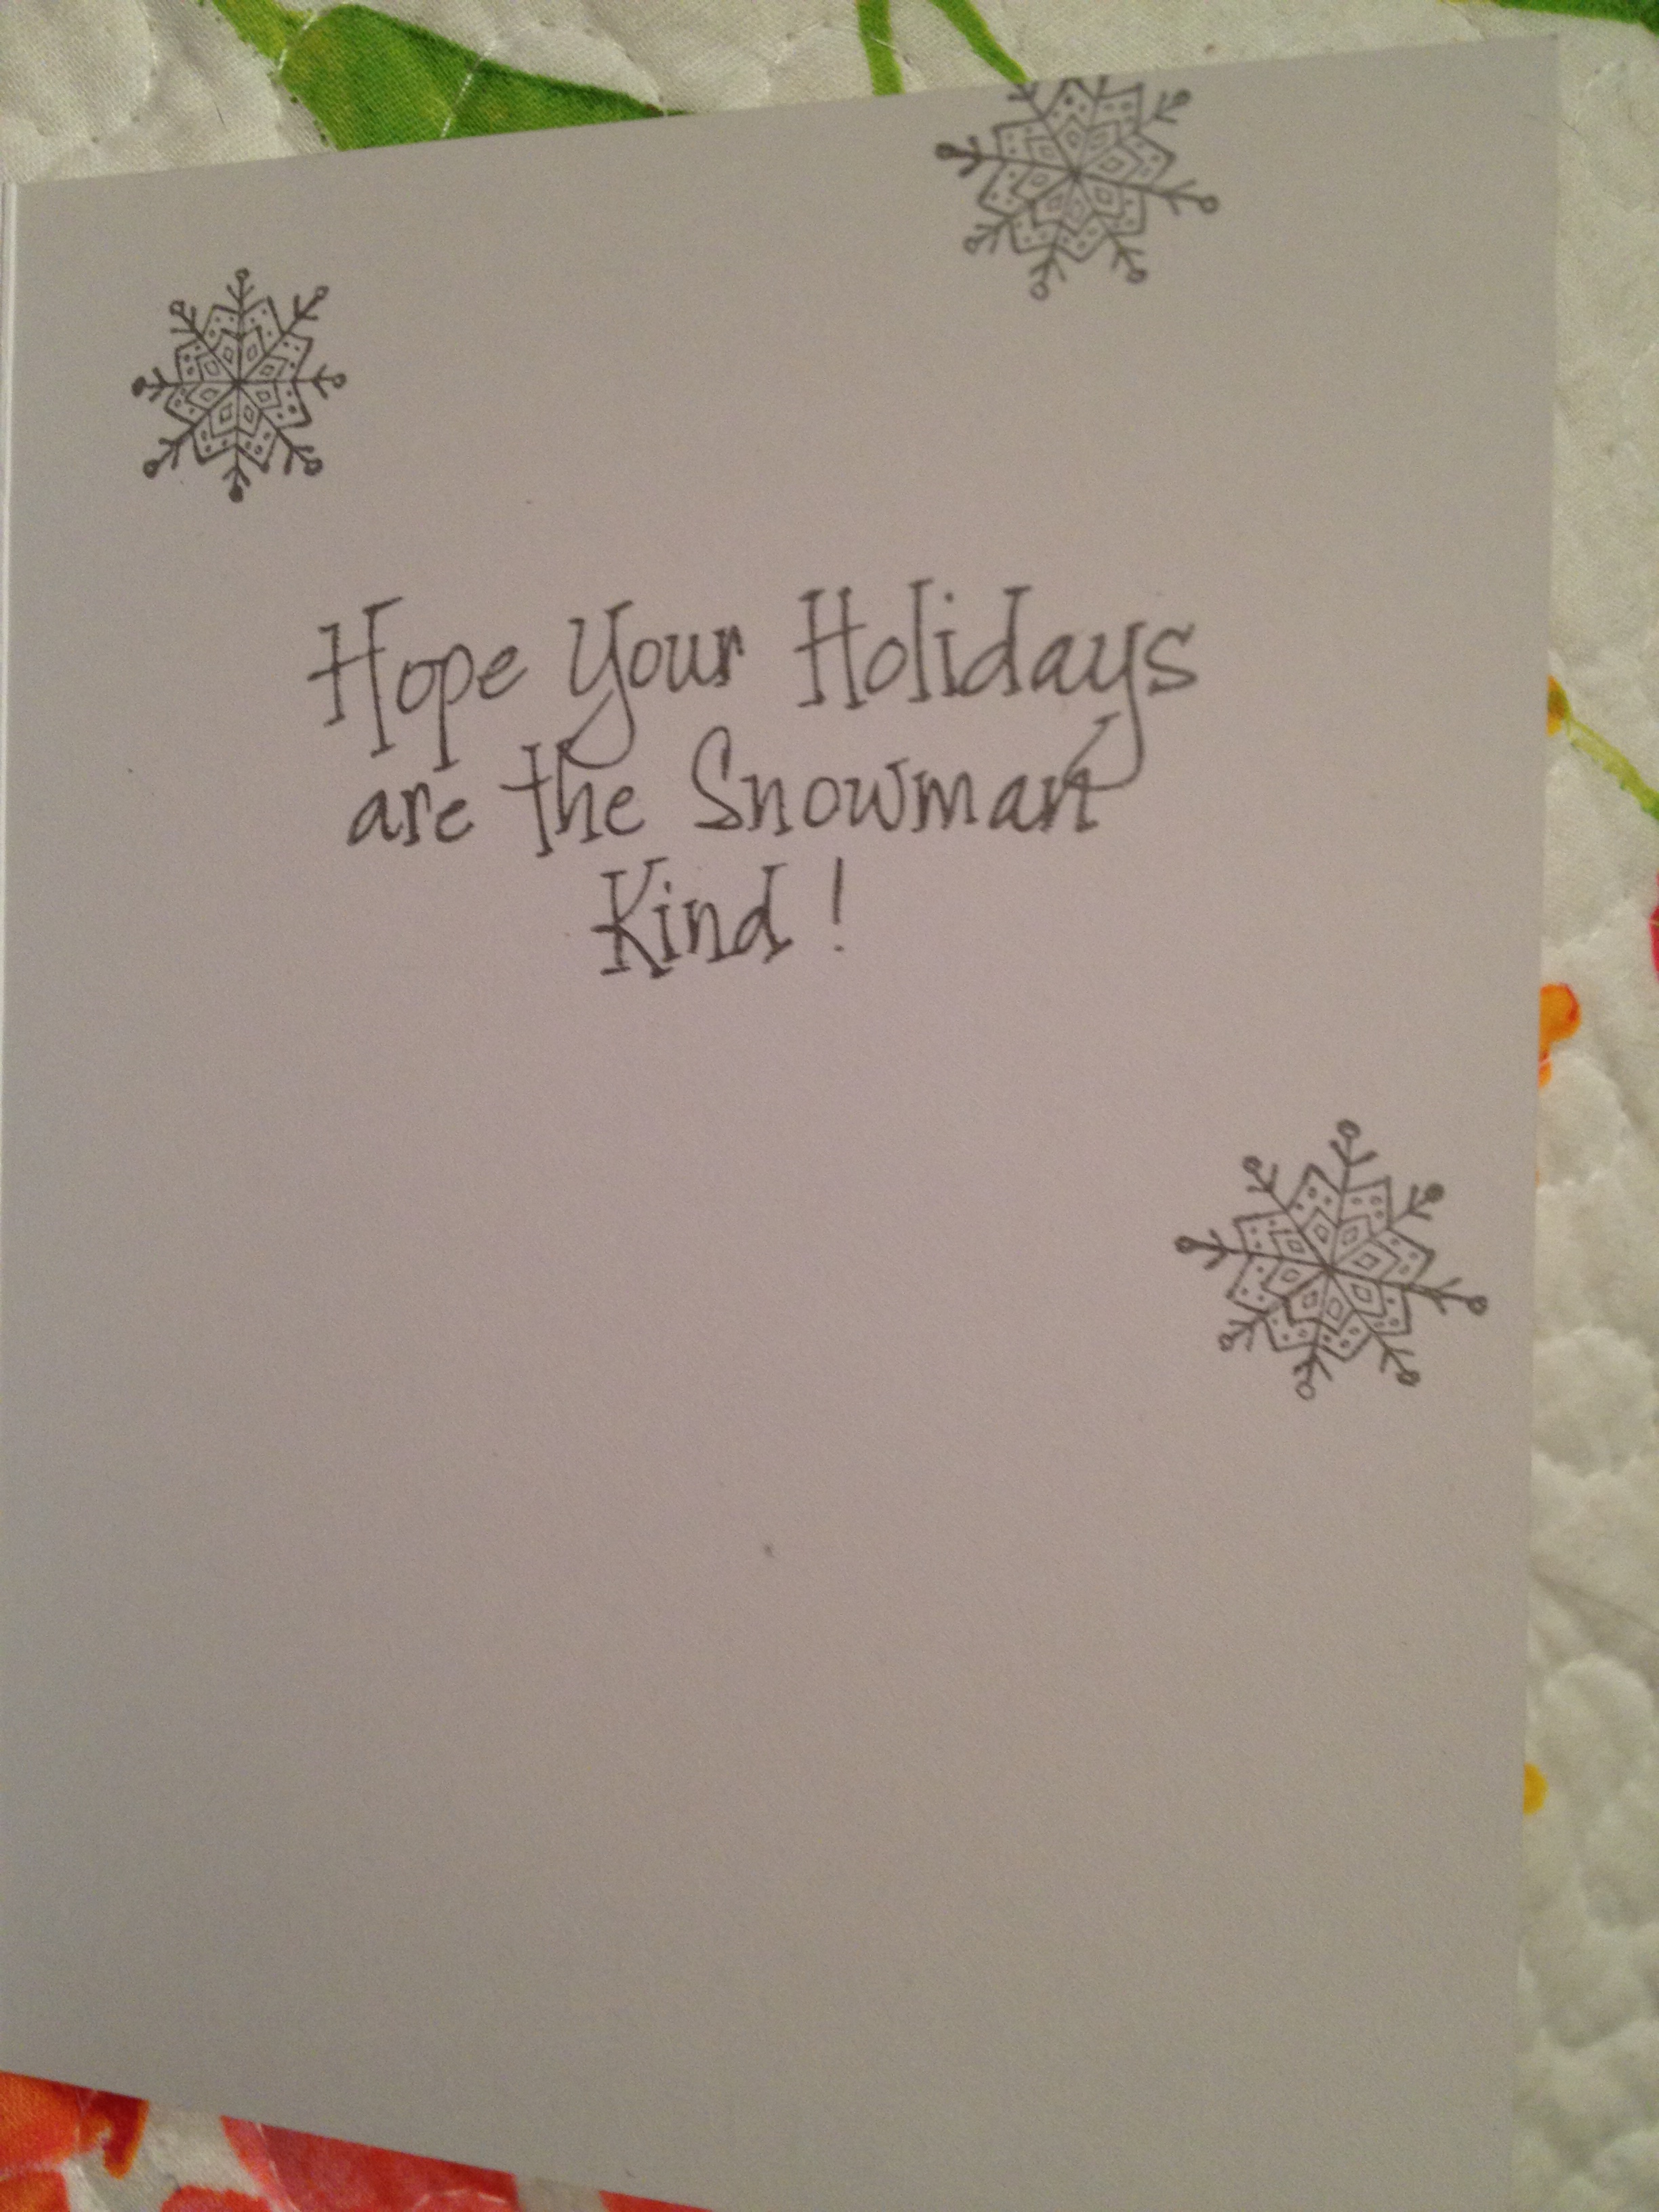 Hope Your Holidays
are the Snowman
Kind!